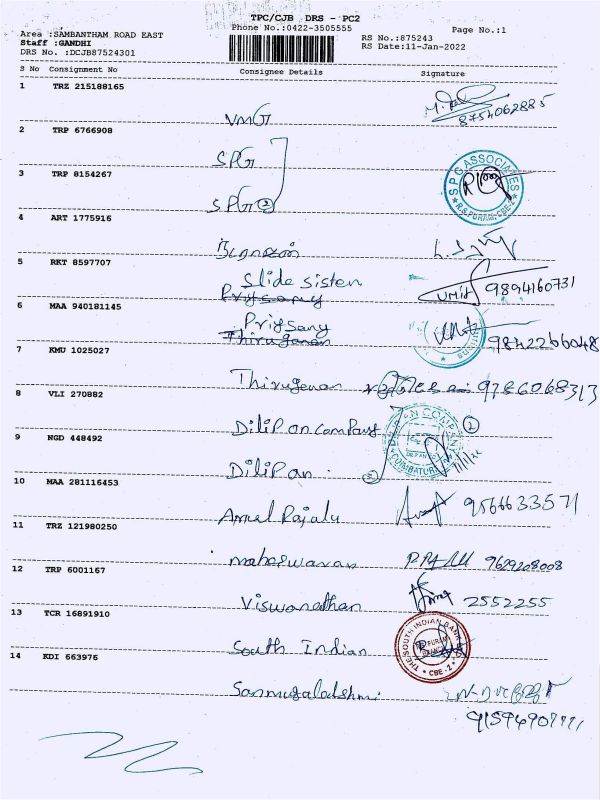 TPC/CJB DRS - PC2
Phone No.:0422-3505555
Page No.:1
Area :SAMBANTHAM ROAD EAST
RS No.:875243
Staff :GANDHI
RS Date:11-Jan-2022
DRS No. :DCJB87524301
S No Consignment No Consignee Details Signature
1 TRZ 215188165
VMG 8754062885
2 TRP 6766908
SPG
3 TRP 8154267
S.P.G ASSOCIATES
R.S PURAM, CBE-2
SPG ②
4 ART 1775916
5 RKT 8597707
Slide Sisten 9894160731
Priysany
6 MAA 940181145
Priysany 9842266048
Thiruganan
7 KMU 1025027
Thiruganan 9786068313
8 VLI 270882
DiliP an company ②
9 NGD 448492
DiliP an
10 MAA 281116453
Amul Rajalu 9566633571
11 TRZ 121980250
maheswaran 9629208008
12 TRP 6001167
Viswanathan 2552255
13 TCR 16891910
THE SOUTH INDIAN BANK
CBE-2
South Indian
14 KDI 663976
Sanmugalakshmi